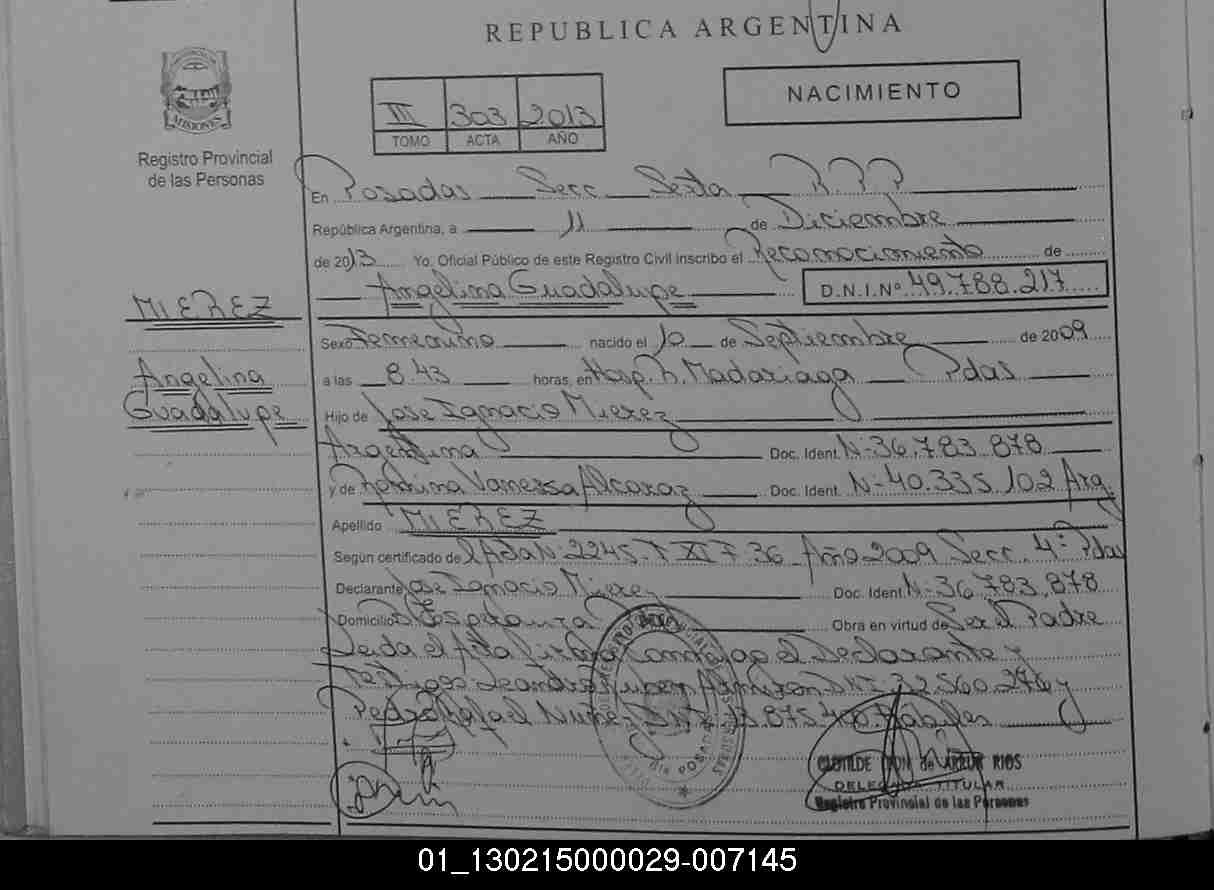 REPUBLICA ARGENTINA
MISIONES
Registro Provincial
de las Personas
III 303 2013
TOMO ACTA AÑO
NACIMIENTO
En Posadas Secc Sexta R.P.P
República Argentina, a 11 de Diciembre
de 2013 Yo. Oficial Público de este Registro Civil inscribo el Reconocimiento de
Angelina Guadalupe D.N.I.Nº 49.788.217
MIEREZ
Sexo Femenino nacido el 10 de Septiembre de 2009
Angelina
a las 8.43 horas, en Hosp. R. Madariaga Pdas
Guadalupe
Hijo de Jose Ignacio Mierez
Argentina Doc. Ident. N-36.783.878
y de Romina Vanessa Alcaraz Doc. Ident. N-40.335.102 Arg.
Apellido MIEREZ
Según certificado de Acta N 2245 T XI F 36 Año 2009 Secc. 4ª Pdas
Declarante Jose Ignacio Mierez Doc. Ident. N-36.783.878
Domicilio Bº Esperanza Obra en virtud de Ser el Padre
Leida el Acta firman Conmigo el Declarante y
Testigos Leandro Ruben DNI 32.560.276 y
Pedro Rafael Nuñez DNI
POSADAS
CLOTILDE de ARRUA RIOS
DELEGADA TITULAR
Registro Provincial de las Personas
01_130215000029-007145